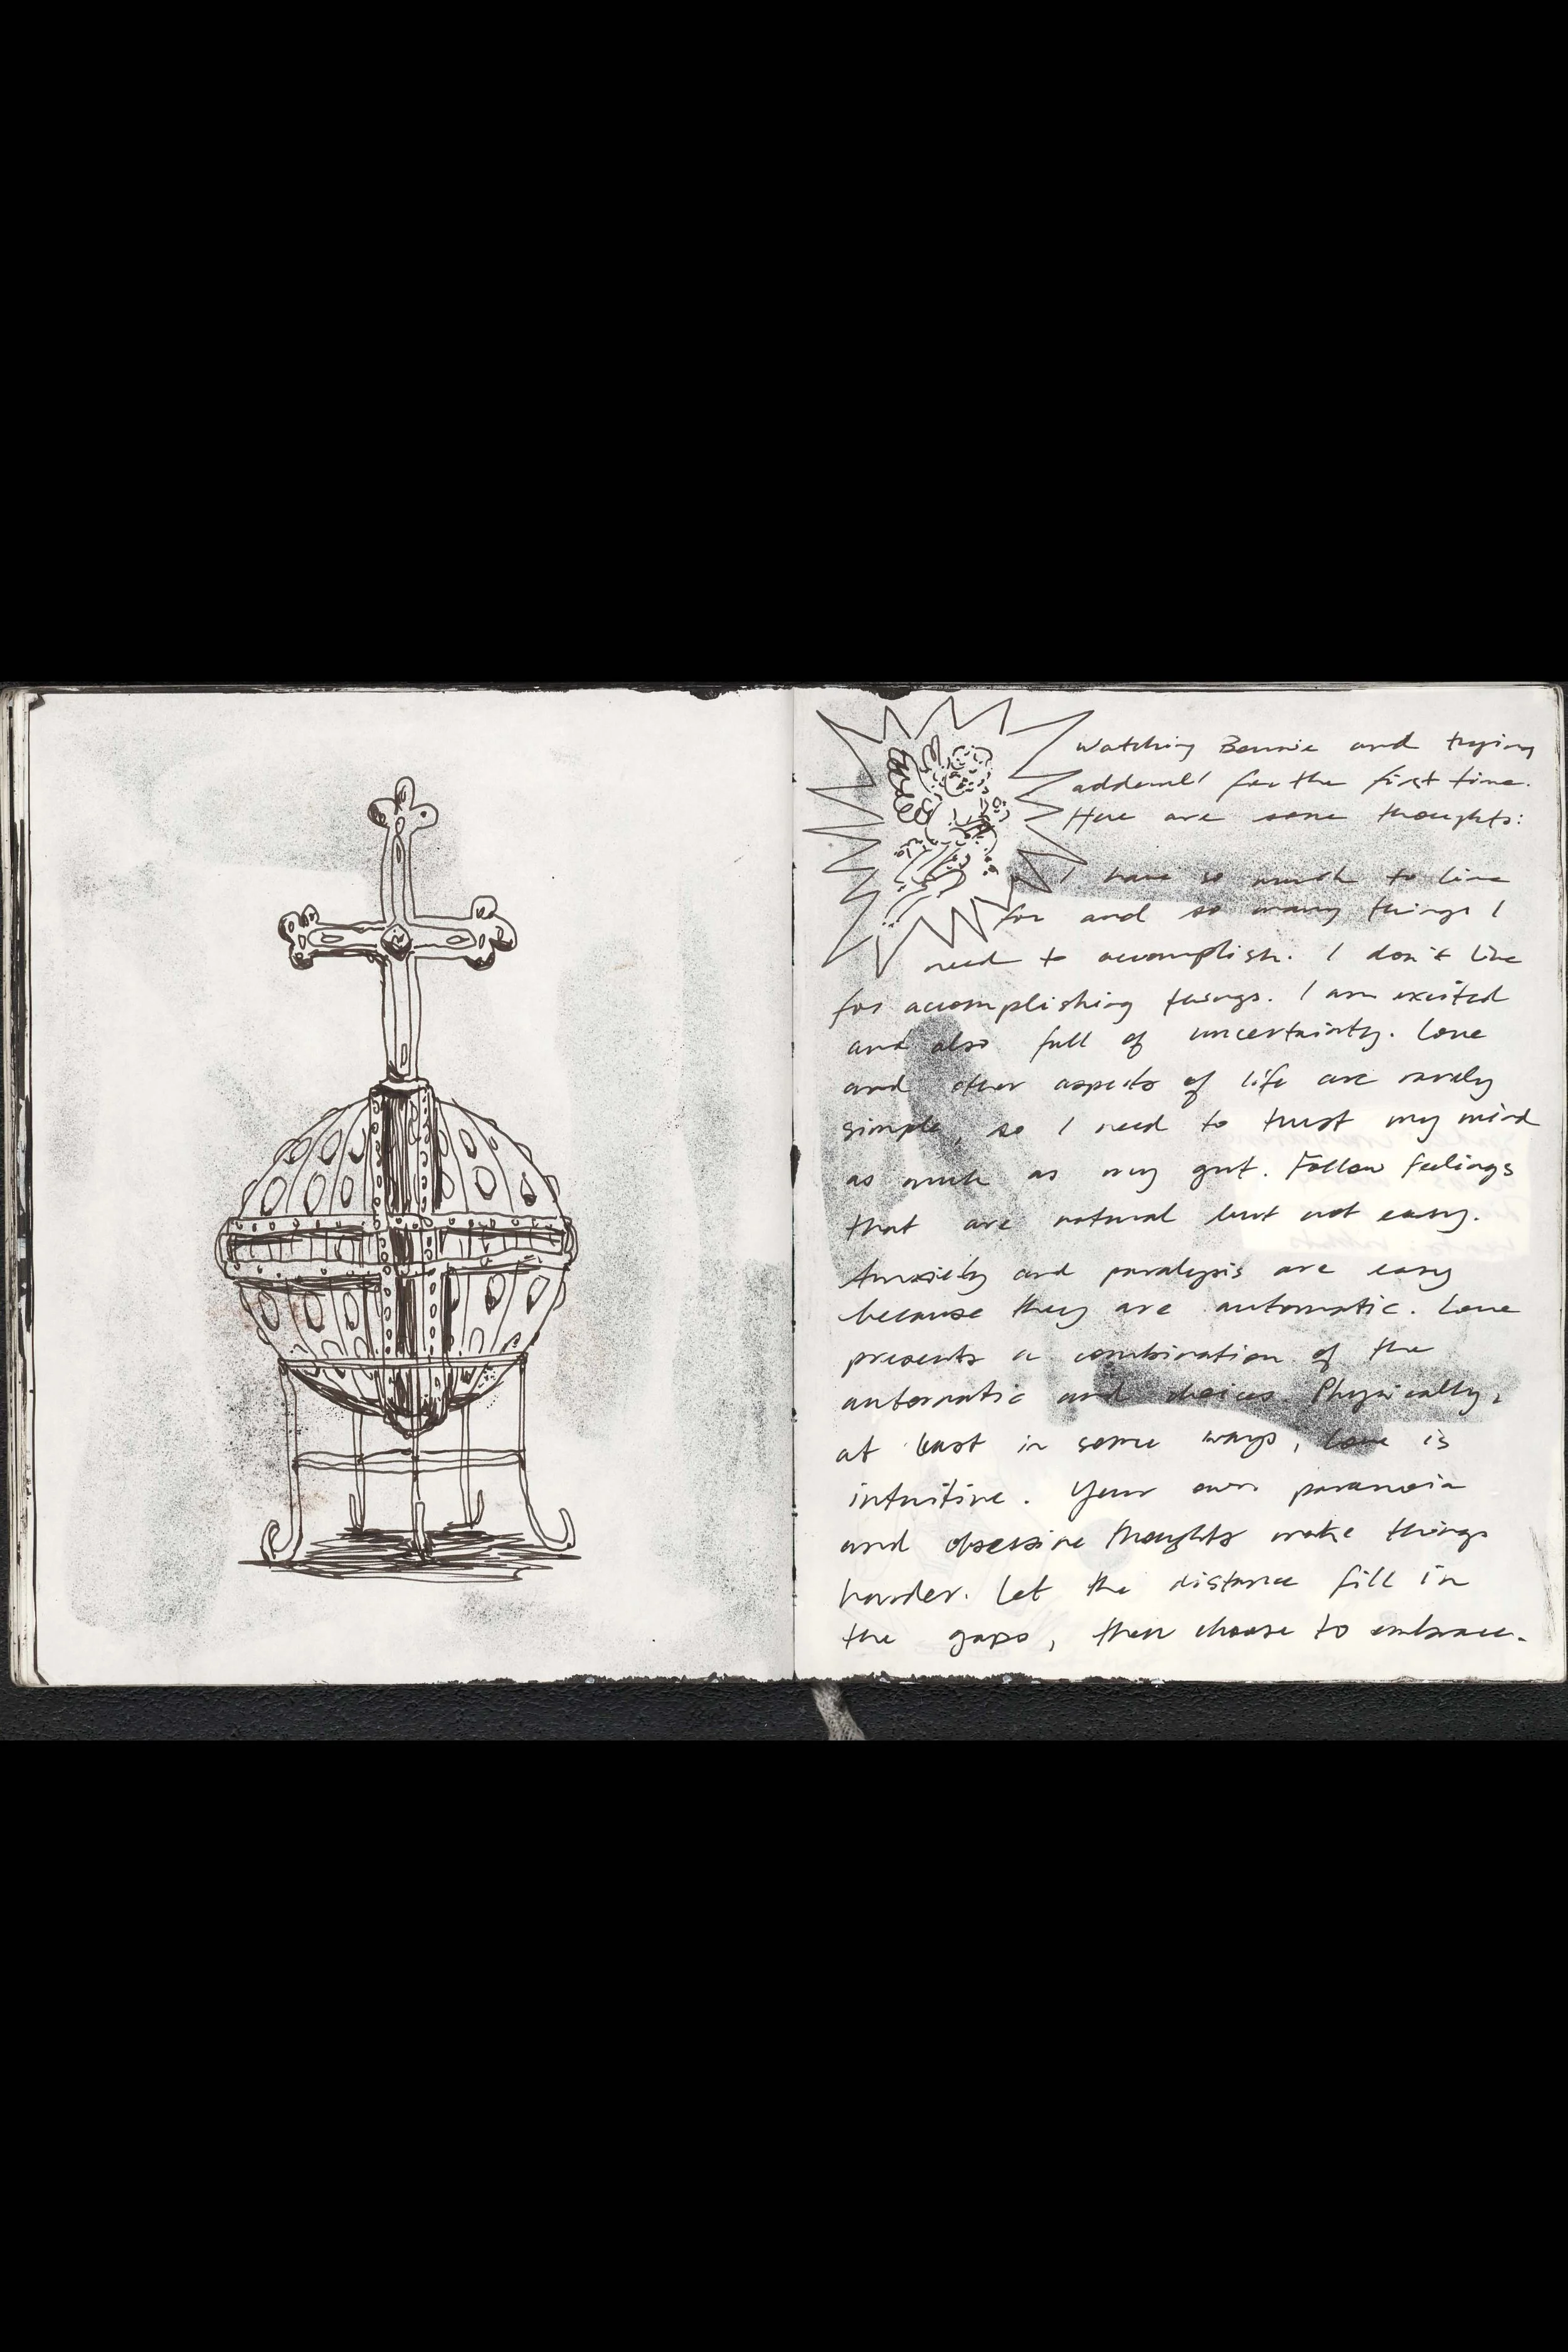 Watching Bernie and trying
adderall for the first time.
Here are some thoughts:
I have so much to live
for and so many things I
need to accomplish. I don't live
for accomplishing things. I am excited
and also full of uncertainty. Love
and other aspects of life are rarely
simple, so I need to trust my mind
as much as my gut. Follow feelings
that are natural but not easy.
Anxiety and paralysis are easy
because they are automatic. Love
presents a combination of the
automatic and choices. Physically,
at least in some ways, love is
intuitive. Your own paranoia
and obsessive thoughts make things
harder. Let the distance fill in
the gaps, then choose to embrace.